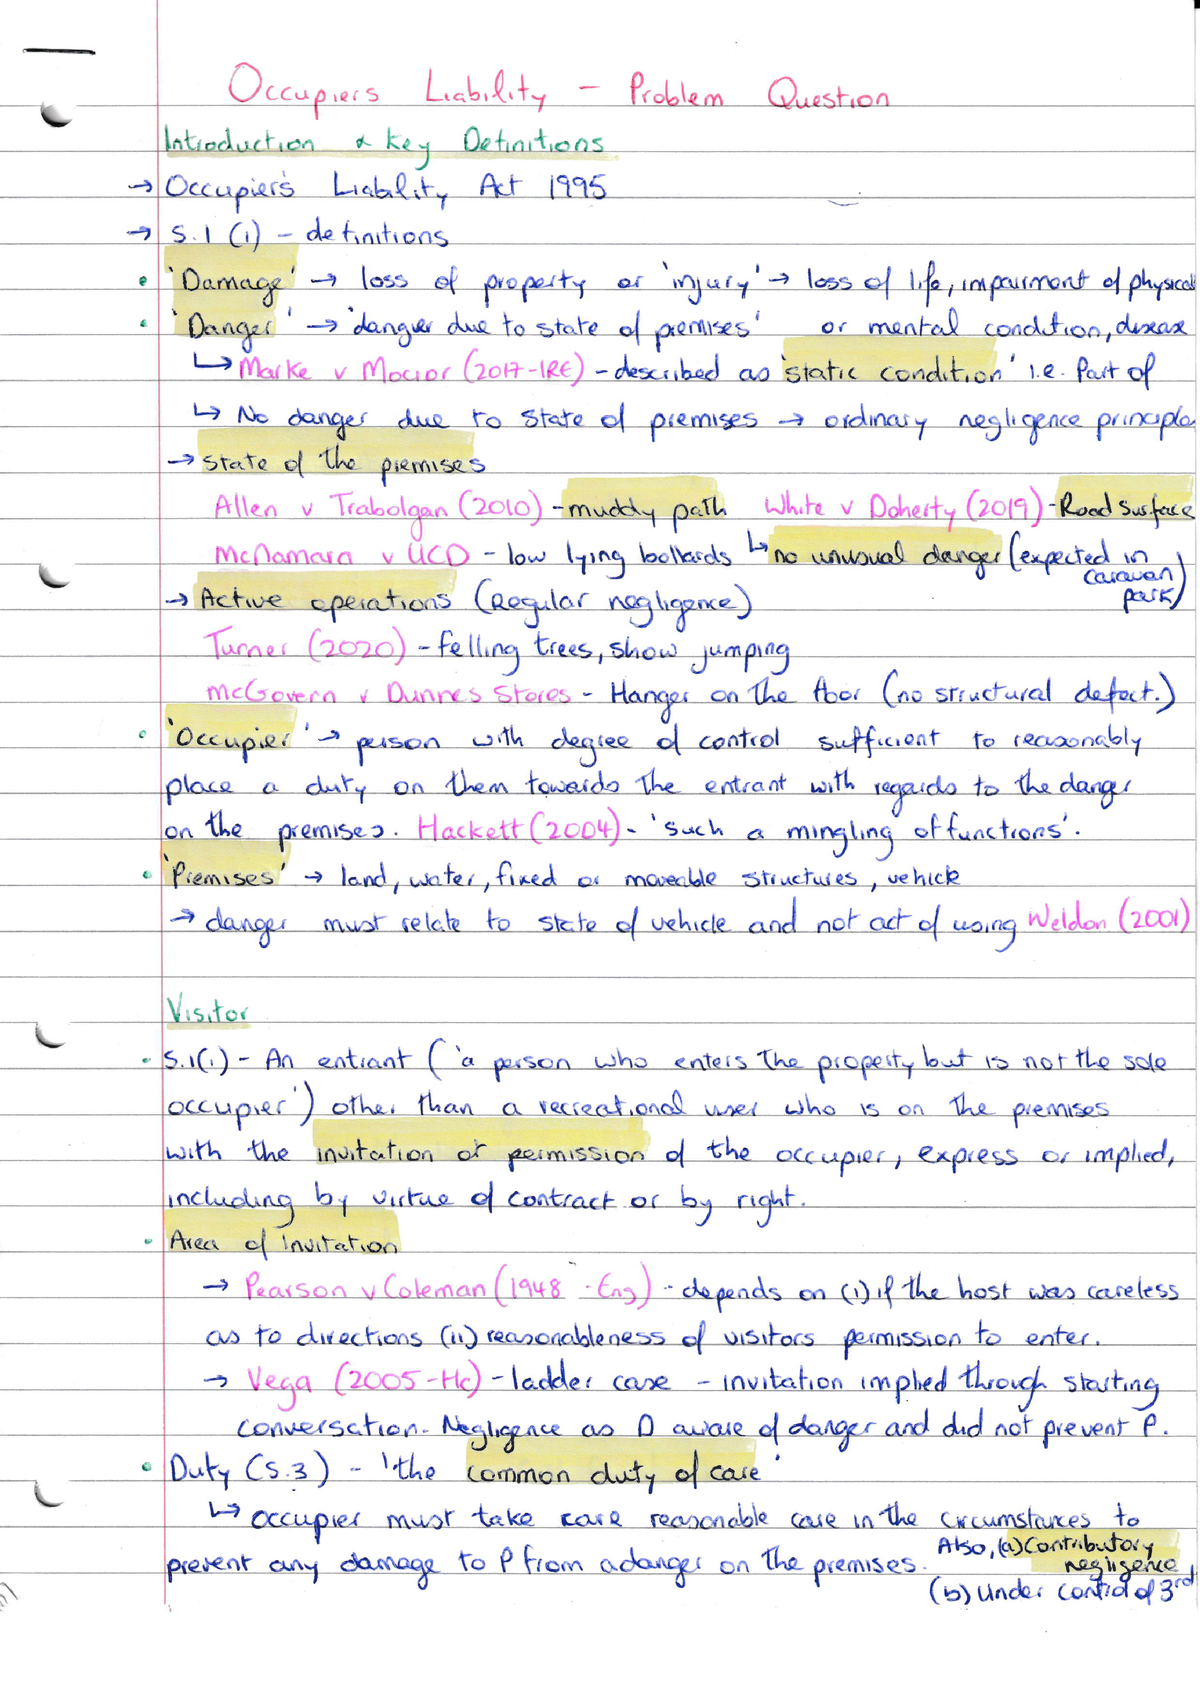 Occupiers Liability - Problem Question
Introduction & Key Definitions
→ Occupiers Liability Act 1995
→ S.1 (1) - definitions
• 'Damage' → loss of property or 'injury' → loss of life, impairment of physical
• 'Danger' → 'danger due to state of premises' or mental condition, disease
↳ Marke v Mocior (2017-IRE) - described as 'static condition' i.e. Part of
↳ No danger due to state of premises → ordinary negligence principle
→ State of the premises
Allen v Trabolgan (2010) - muddy path White v Doherty (2019) - Road Surface
McNamara v UCD - low lying bollards ↳ no unusual danger (expected in
caravan
park)
→ Active operations (Regular negligence)
Turner (2020) - felling trees, show jumping
McGovern v Dunnes Stores - Hanger on the floor (no structural defect.)
• 'Occupier' → person with degree of control sufficient to reasonably
place a duty on them towards the entrant with regards to the danger
on the premises. Hackett (2004) - 'such a mingling of functions'.
• 'Premises' → land, water, fixed or moveable structures, vehicle
→ danger must relate to state of vehicle and not act of using Weldon (2001)
Visitor
• S.1(1) - An entrant ('a person who enters the property but is not the sole
occupier') other than a recreational user who is on the premises
with the invitation or permission of the occupier, express or implied,
including by virtue of contract or by right.
• Area of Invitation
→ Pearson v Coleman (1948 - Eng) - depends on (i) if the host was careless
as to directions (ii) reasonableness of visitors permission to enter.
→ Vega (2005-Hc) - ladder case - invitation implied through starting
conversation. Negligence as D aware of danger and did not prevent P.
• Duty (S.3) - 'the common duty of care'
↳ occupier must take care reasonable care in the circumstances to
prevent any damage to P from a danger on the premises. Also, (a) Contributory
negligence
(b) Under control of 3rd